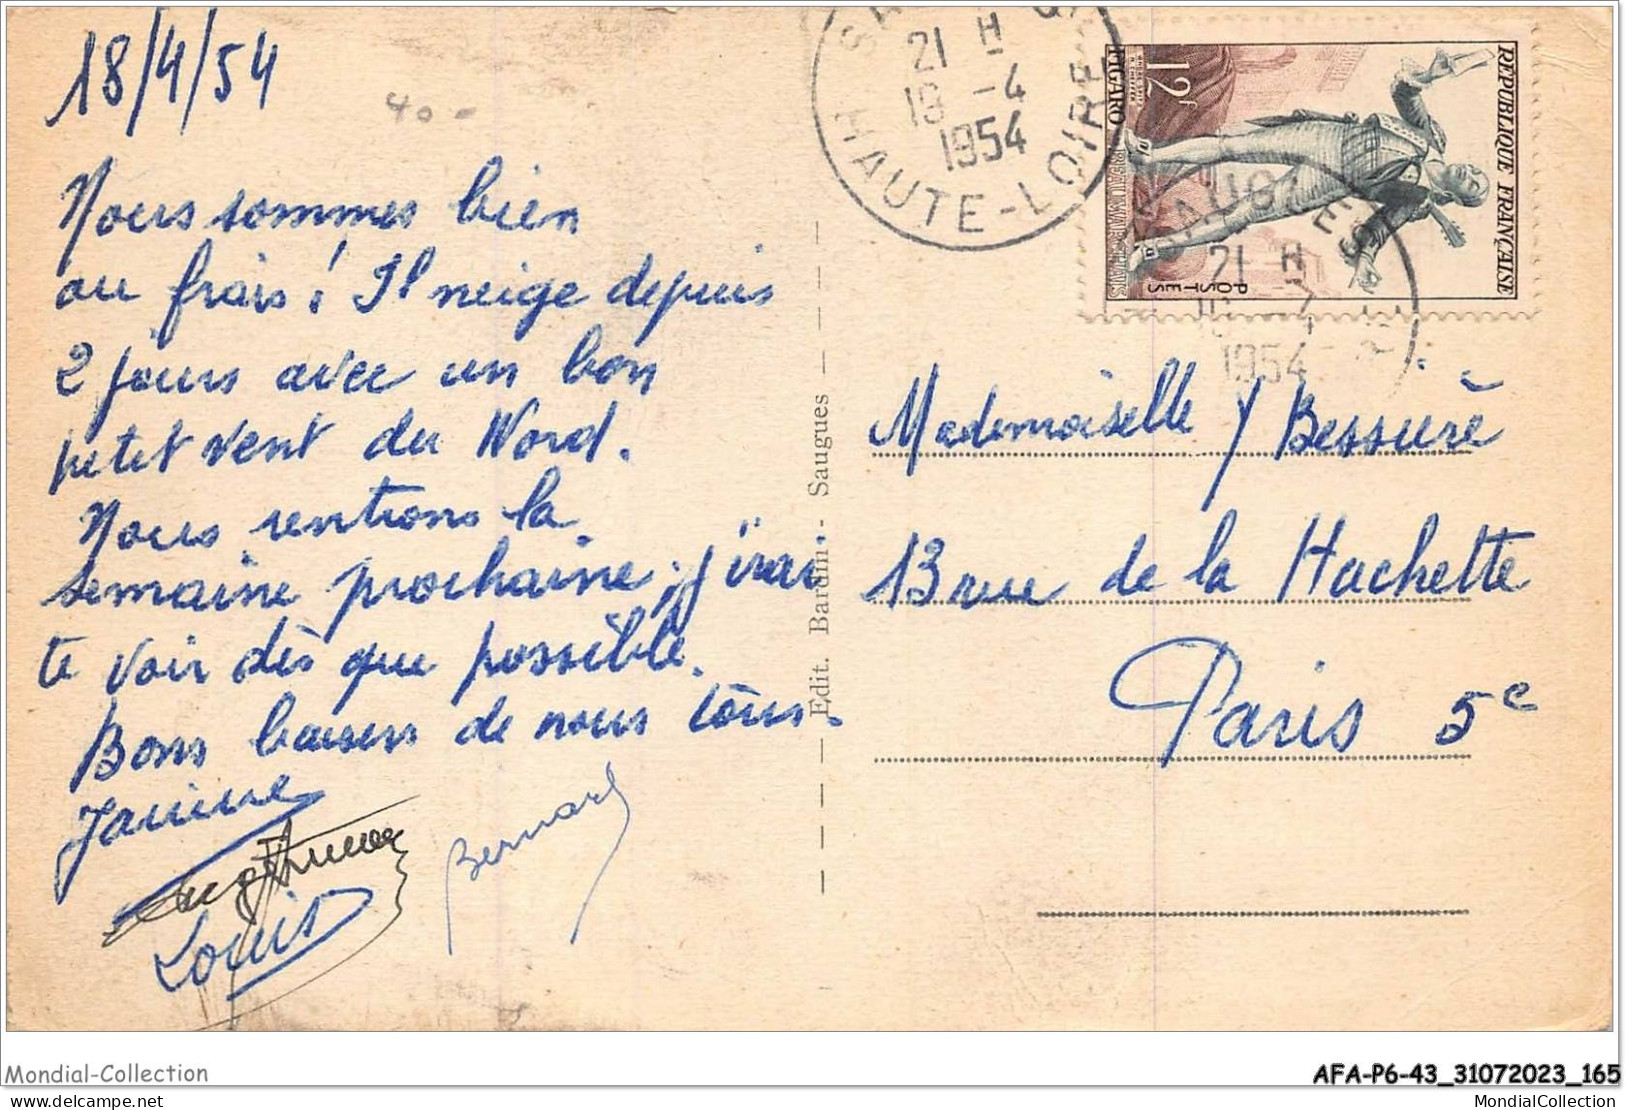 18/4/54
40 -
Nous sommes bien
au frais ! Il neige depuis
2 jours avec un bon
petit vent du Nord.
Nous rentrons la
semaine prochaine, j'irai
te voir dès que possible.
Bons baisers de nous tous.
Janine
Bernard
Louis
Edit. Bardin - Saugues
21 H
19 -4
1954
HAUTE-LOIRE
SAUGUES
21 H
1954
RÉPUBLIQUE FRANÇAISE
12F
FIGARO
BEAUMARCHAIS
POSTES
Mademoiselle Y Bessière
13 rue de la Huchette
Paris 5e
Mondial-Collection
AFA-P6-43_31072023_165
delcampe.net
MondialCollection